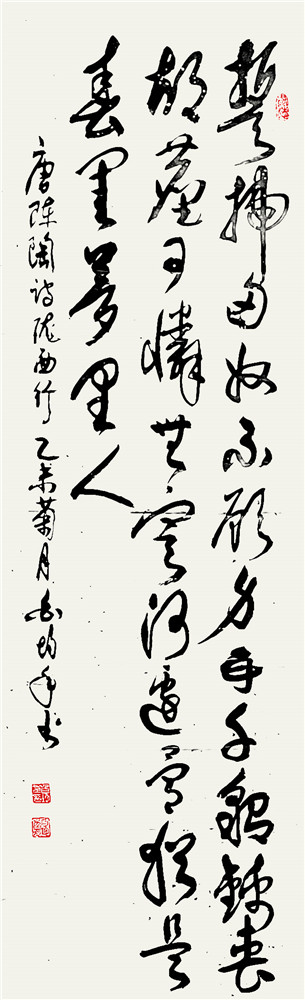 誓掃匈奴不顧身五千貂錦喪
胡塵可憐無定河邊骨猶是
春閨夢里人
唐陳陶詩隴西行乙未菊月書